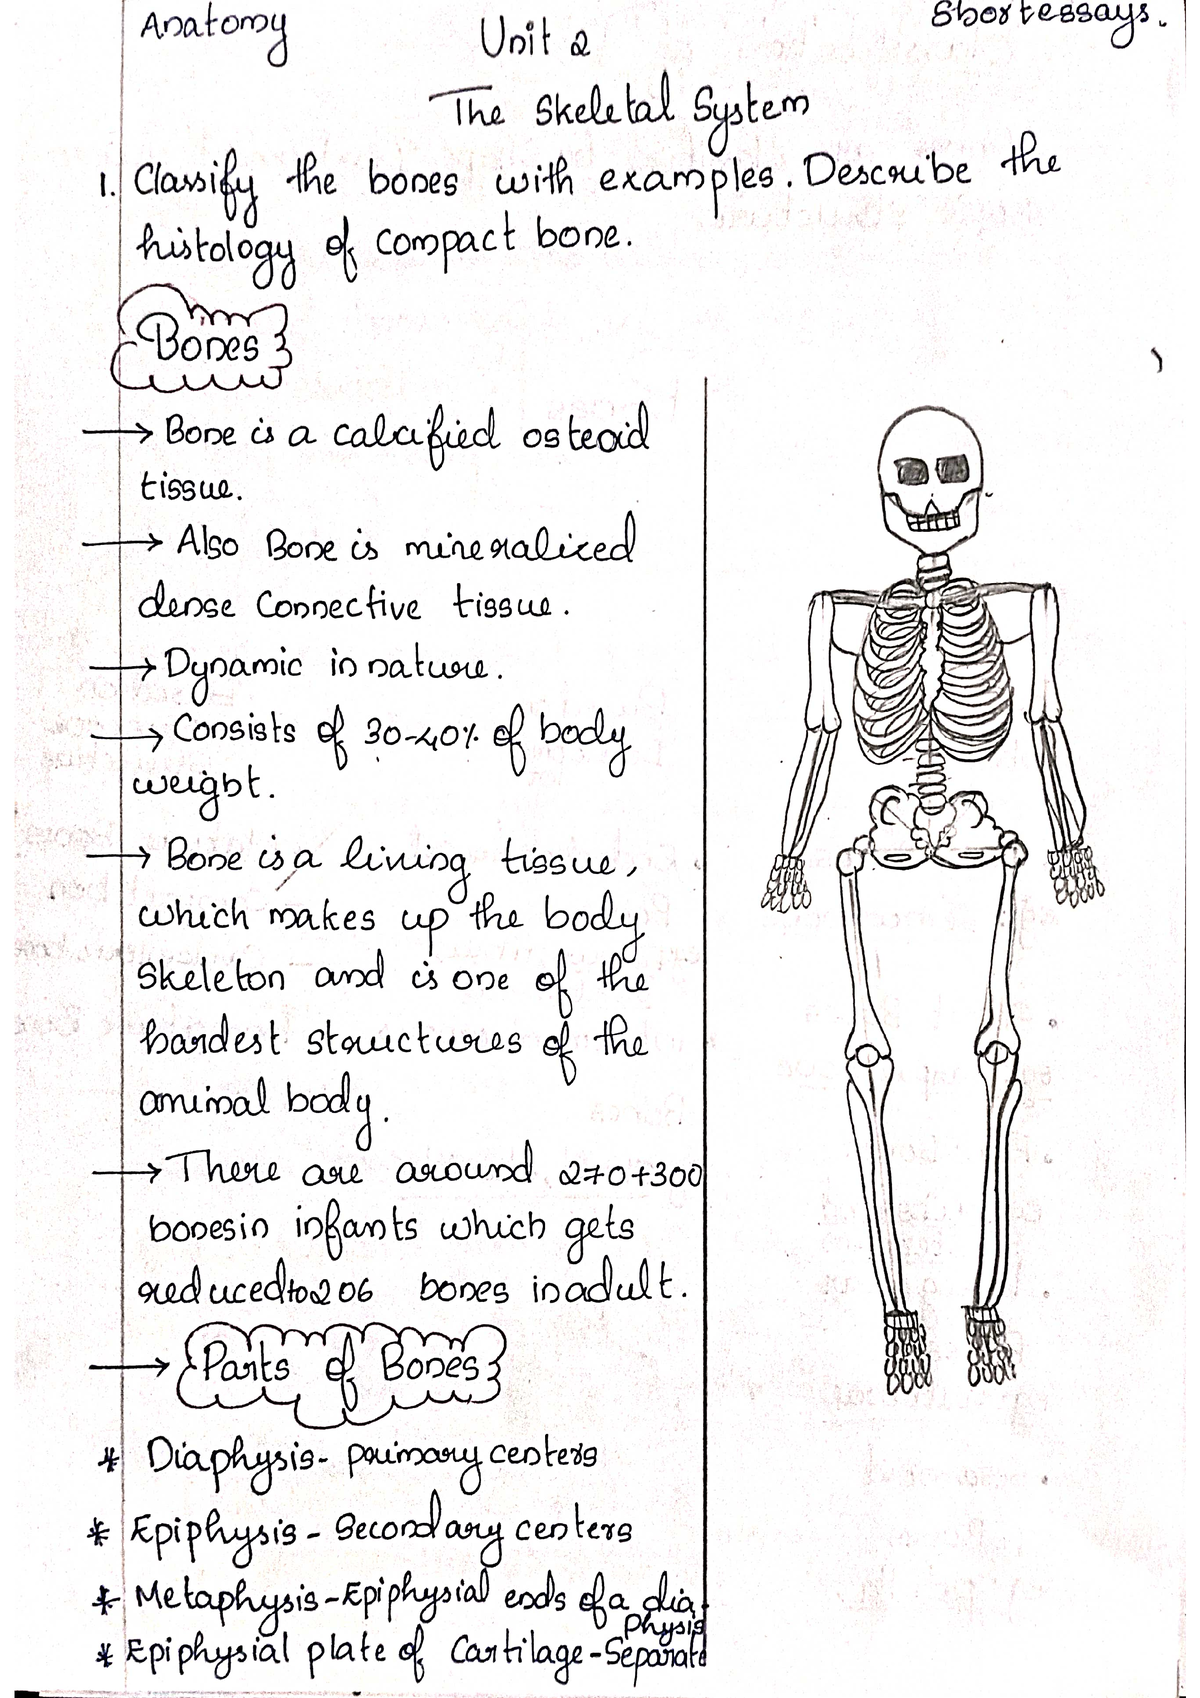 Anatomy
Unit 2
Shortessays.
The Skeletal System
1. Classify the bones with examples. Describe the
histology of compact bone.
Bones
→ Bone is a calcified osteoid
tissue.
→ Also Bone is mineralized
dense Connective tissue.
→ Dynamic in nature.
→ Consists of 30-40% of body
weight.
→ Bone is a living tissue,
which makes up the body
skeleton and is one of the
hardest structures of the
animal body.
→ There are around 270+300
bones in infants which gets
reduced to 206 bones in adult.
→ Parts of Bones
* Diaphysis - primary centers
* Epiphysis - Secondary centers
* Metaphysis - Epiphysial ends of a dia-
physis
* Epiphysial plate of Cartilage - Separate